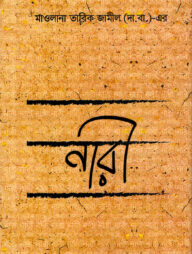 মাওলানা তারিক জামীল (দা.বা.)-এর
নারী